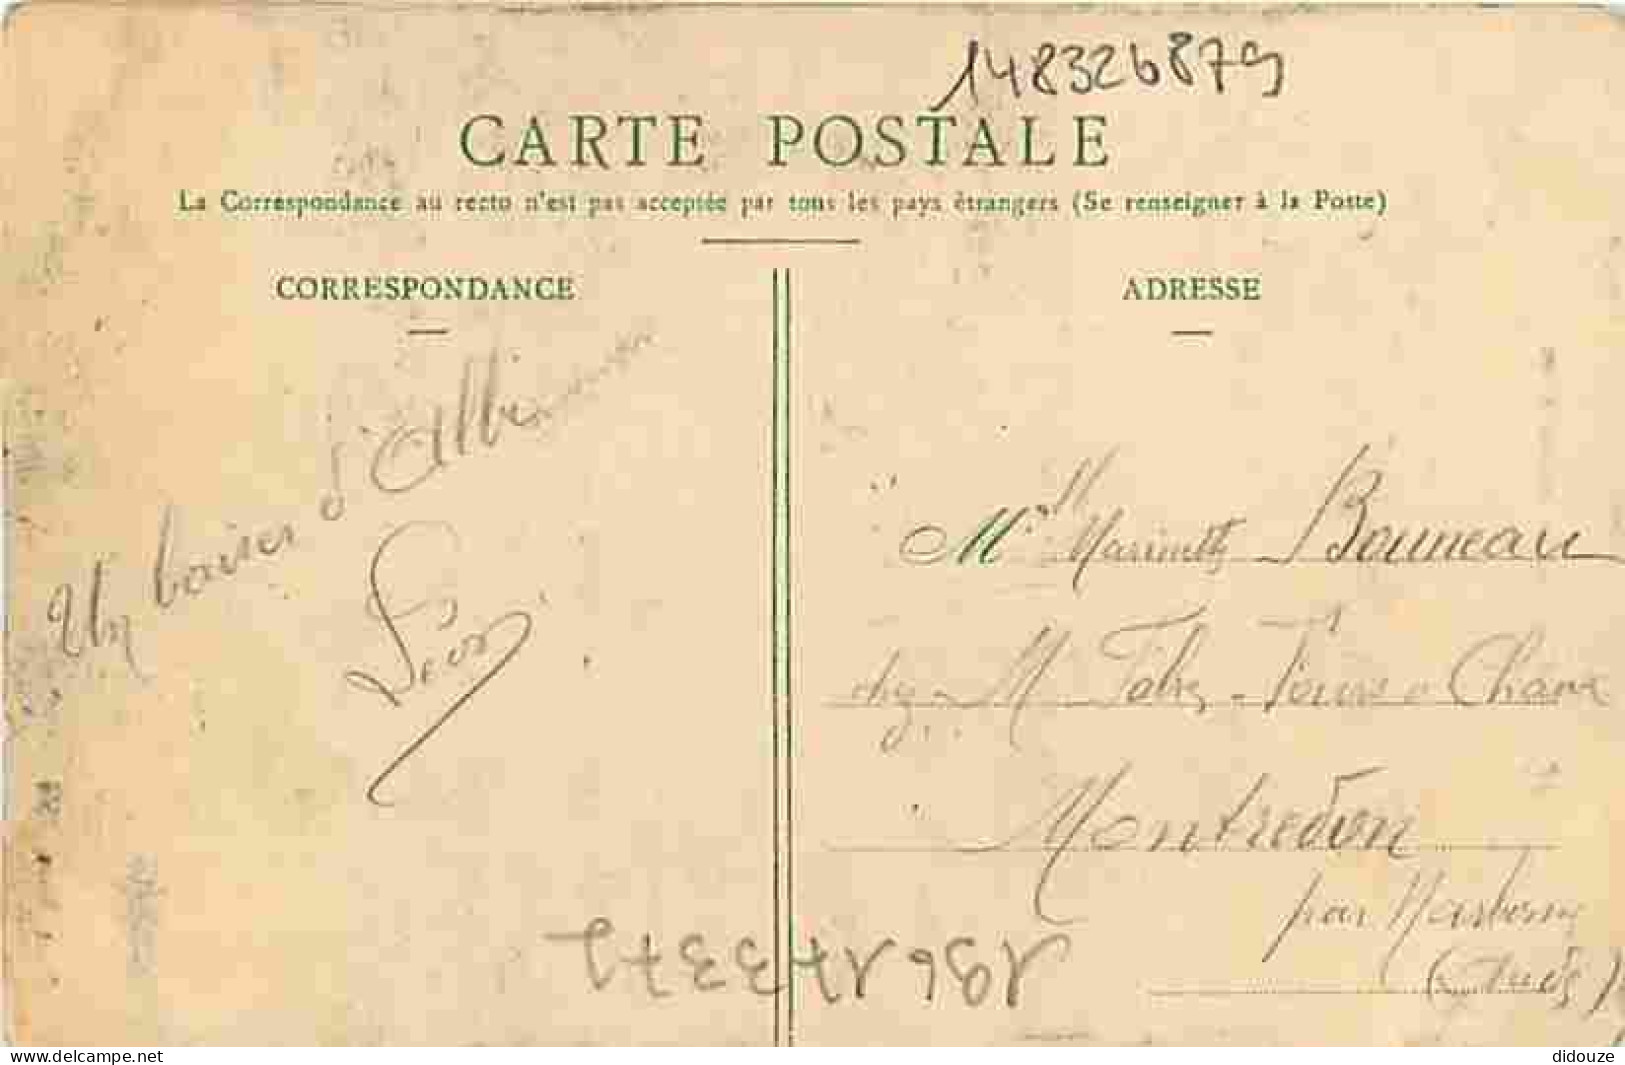 148326879
CARTE POSTALE
La Correspondance au recto n'est pas acceptée par tous les pays étrangers (Se renseigner à la Poste)
CORRESPONDANCE
ADRESSE
Un baiser d'Albi
Léon
Mr Bonneau
chez M Fabre
Montredon
par Narbonne
(Aude)
www.delcampe.net
didouze